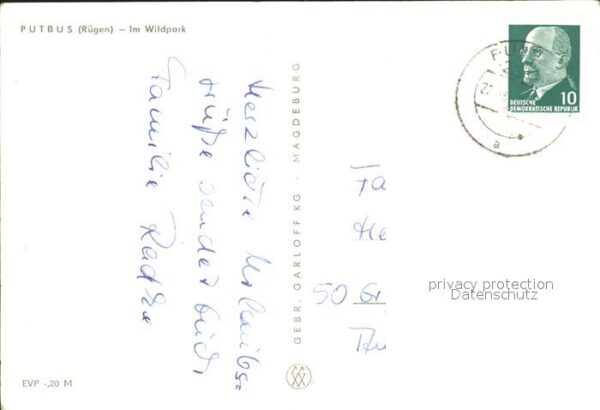 PUTBUS (Rügen) – Im Wildpark
Herzliche Urlaubs-
grüße sendet Euch,
Familie
GEBR. GARLOFF KG · MAGDEBURG
Fa
He
50 Gr
Thu
10
DEUTSCHE
DEMOKRATISCHE REPUBLIK
a
privacy protection
Datenschutz
EVP -,20 M